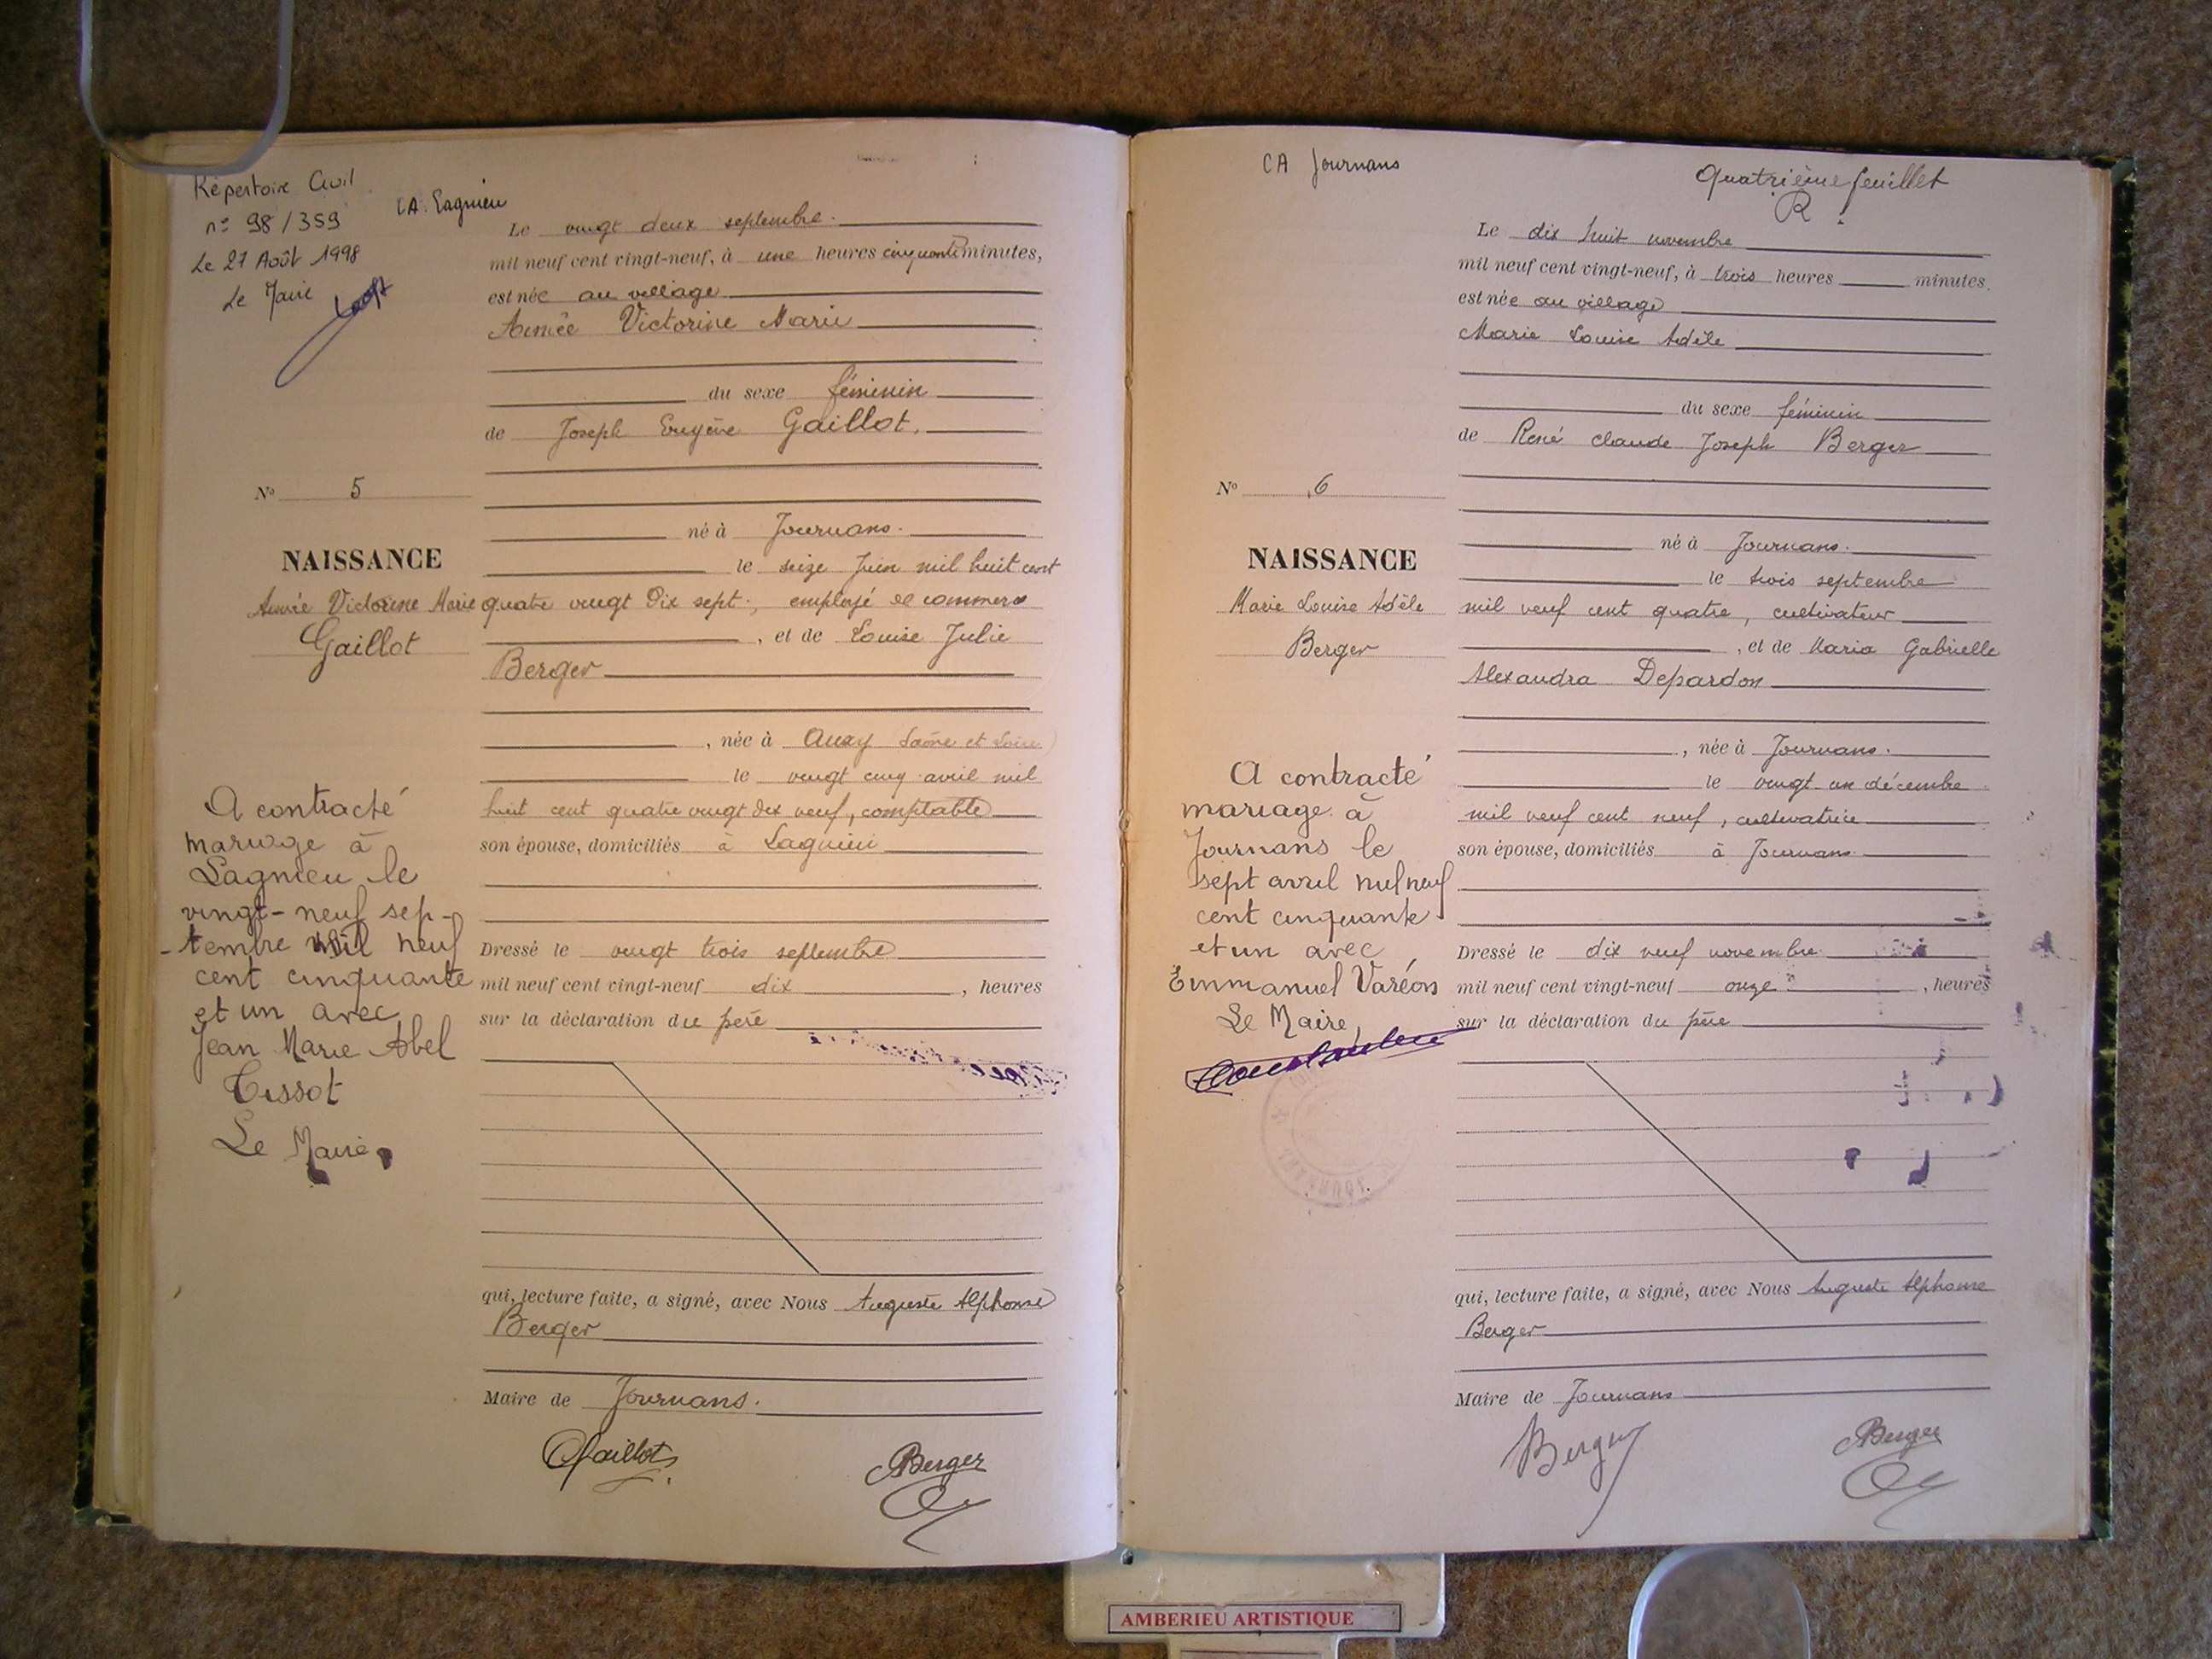 Répertoire Civil
n° 98/359
Le 27 Août 1998
Le Maire
CA. Lagnieu
Le vingt deux septembre.
mil neuf cent vingt-neuf, à une heures cinquante minutes,
est née au village
Aimée Victorine Marie
du sexe féminin
de Joseph Eugène Gaillot,
né à Journans.
le seize Juin mil huit cent
quatre vingt Dix sept, employé de commerce
, et de Louise Julie
Berger
, née à (Saône et Loire)
le vingt cinq avril mil
huit cent quatre vingt dix neuf, comptable
son épouse, domiciliés à Lagnieu
Dressé le vingt trois septembre
mil neuf cent vingt-neuf dix , heures
sur la déclaration du père
qui, lecture faite, a signé, avec Nous Auguste Alphonse
Berger
Maire de Journans.
Gaillot
Berger
N° 5
NAISSANCE
Aimée Victorine Marie
Gaillot
A contracté
mariage à
Lagnieu le
vingt-neuf sep-
-tembre mil neuf
cent cinquante
et un avec
Jean Marie Abel
Tissot
Le Maire,
CA Journans
Quatrième feuillet
R
Le dix huit novembre
mil neuf cent vingt-neuf, à trois heures minutes,
est née au village
Marie Louise Adèle
du sexe féminin
de René Claude Joseph Berger
né à Journans.
le trois septembre
mil neuf cent quatre, cultivateur
, et de Maria Gabrielle
Alexandra Depardon
, née à Journans.
le vingt un décembre
mil neuf cent neuf, cultivatrice
son épouse, domiciliés à Journans
Dressé le dix neuf novembre
mil neuf cent vingt-neuf onze , heures
sur la déclaration du père
qui, lecture faite, a signé, avec Nous Auguste Alphonse
Berger
Maire de Journans
Berger
Berger
N° 6
NAISSANCE
Marie Louise Adèle
Berger
A contracté
mariage à
Journans le
sept avril mil neuf
cent cinquante
et un avec
Emmanuel Varéon
Le Maire,
AMBERIEU ARTISTIQUE